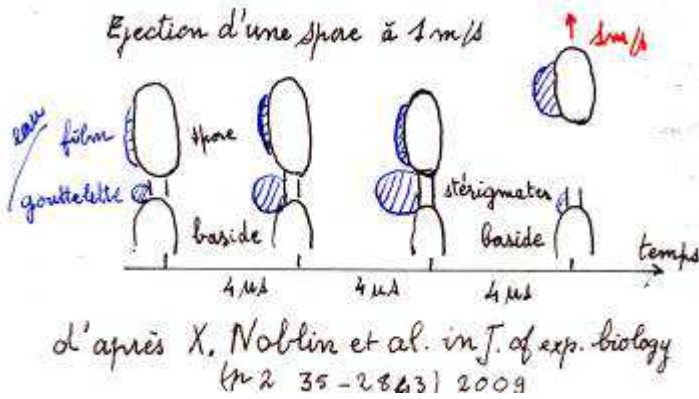 Ejection d'une spore à 1 m/s
1m/s
eau
film
spore
gouttelette
stérigmates
baside
baside
temps
4 µs
4 µs
4 µs
d'après X. Noblin et al. in J. of exp. biology
(p 2 35-2843) 2009